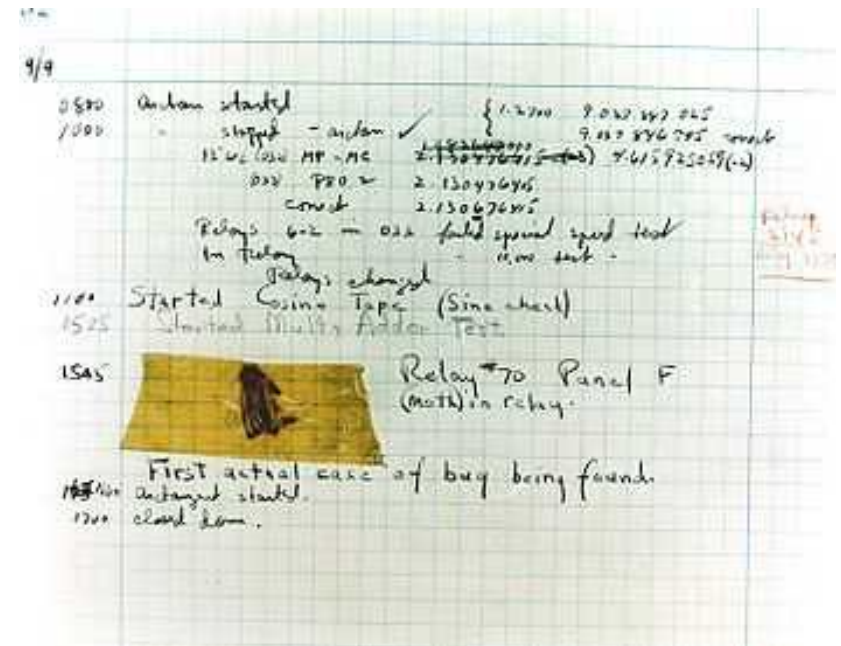 9/9
0800 Antan started
1000 " stopped - antan ✓ { 1.2700 9.037 847 025
9.037 846 795 correct
13"UC (032) MP - MC 2.130476415 4.615925059(-2)
(033) PRO 2 2.130476415
correct 2.130676415
Relays 6-2 in 033 failed special speed test
In Relay " 10,000 test "
Relays changed
1100 Started Cosine Tape (Sine check)
1525 Started Mult+ Adder Test.
1545 Relay #70 Panel F
(Moth) in relay.
First actual case of bug being found.
antangent started.
1700 closed down.